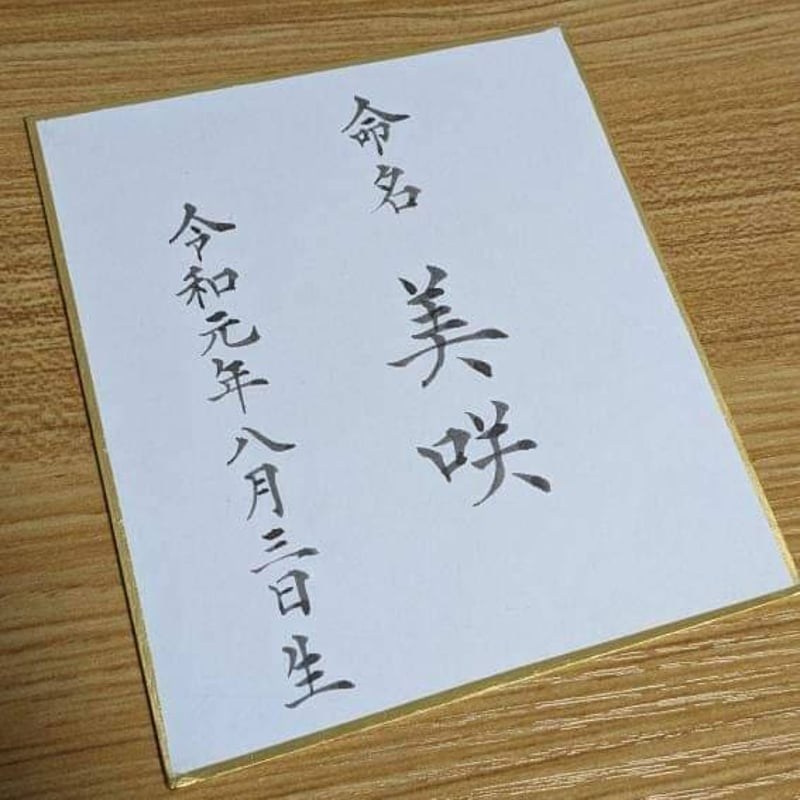 命名 美咲
令和元年八月三日生